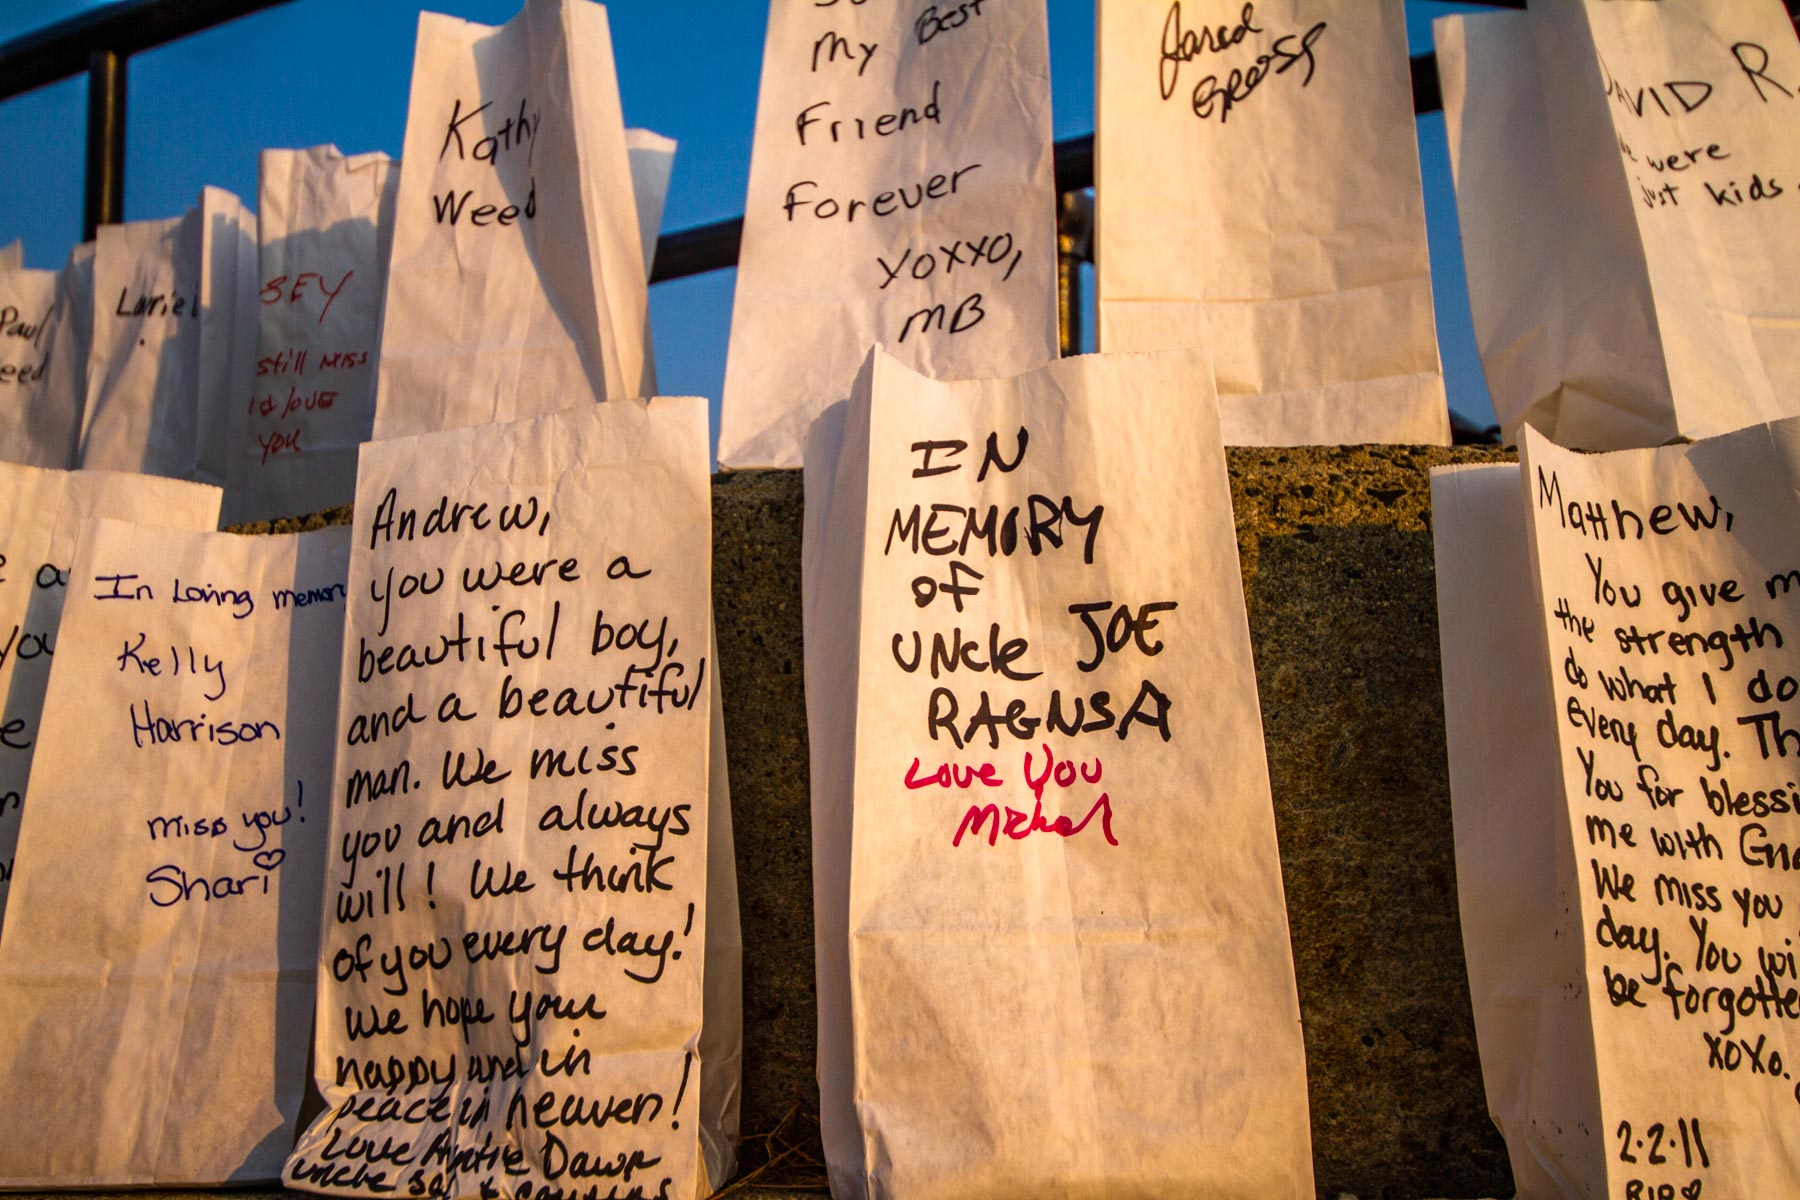 Paul
Laurie
BEY
still miss
love
you
Kathy
Weed
My Best
Friend
Forever
XOXXO,
MB
Jared
DAVID R.
were
just kids
In Loving memory
Kelly
Harrison
miss you!
Shari
Andrew,
you were a
beautiful boy,
and a beautiful
man. We miss
you and always
will! We think
of you every day!
We hope your
happy and in
peace in heaven!
Love Auntie Dawn
uncle Sal &
IN
MEMORY
of
UNcle JOE
RAGNSA
Love You
Michael
Matthew,
You give
the strength
do what I do
every day.
You for
me with
We miss you
day. You
be
XOXO.
2.2.11
RIP